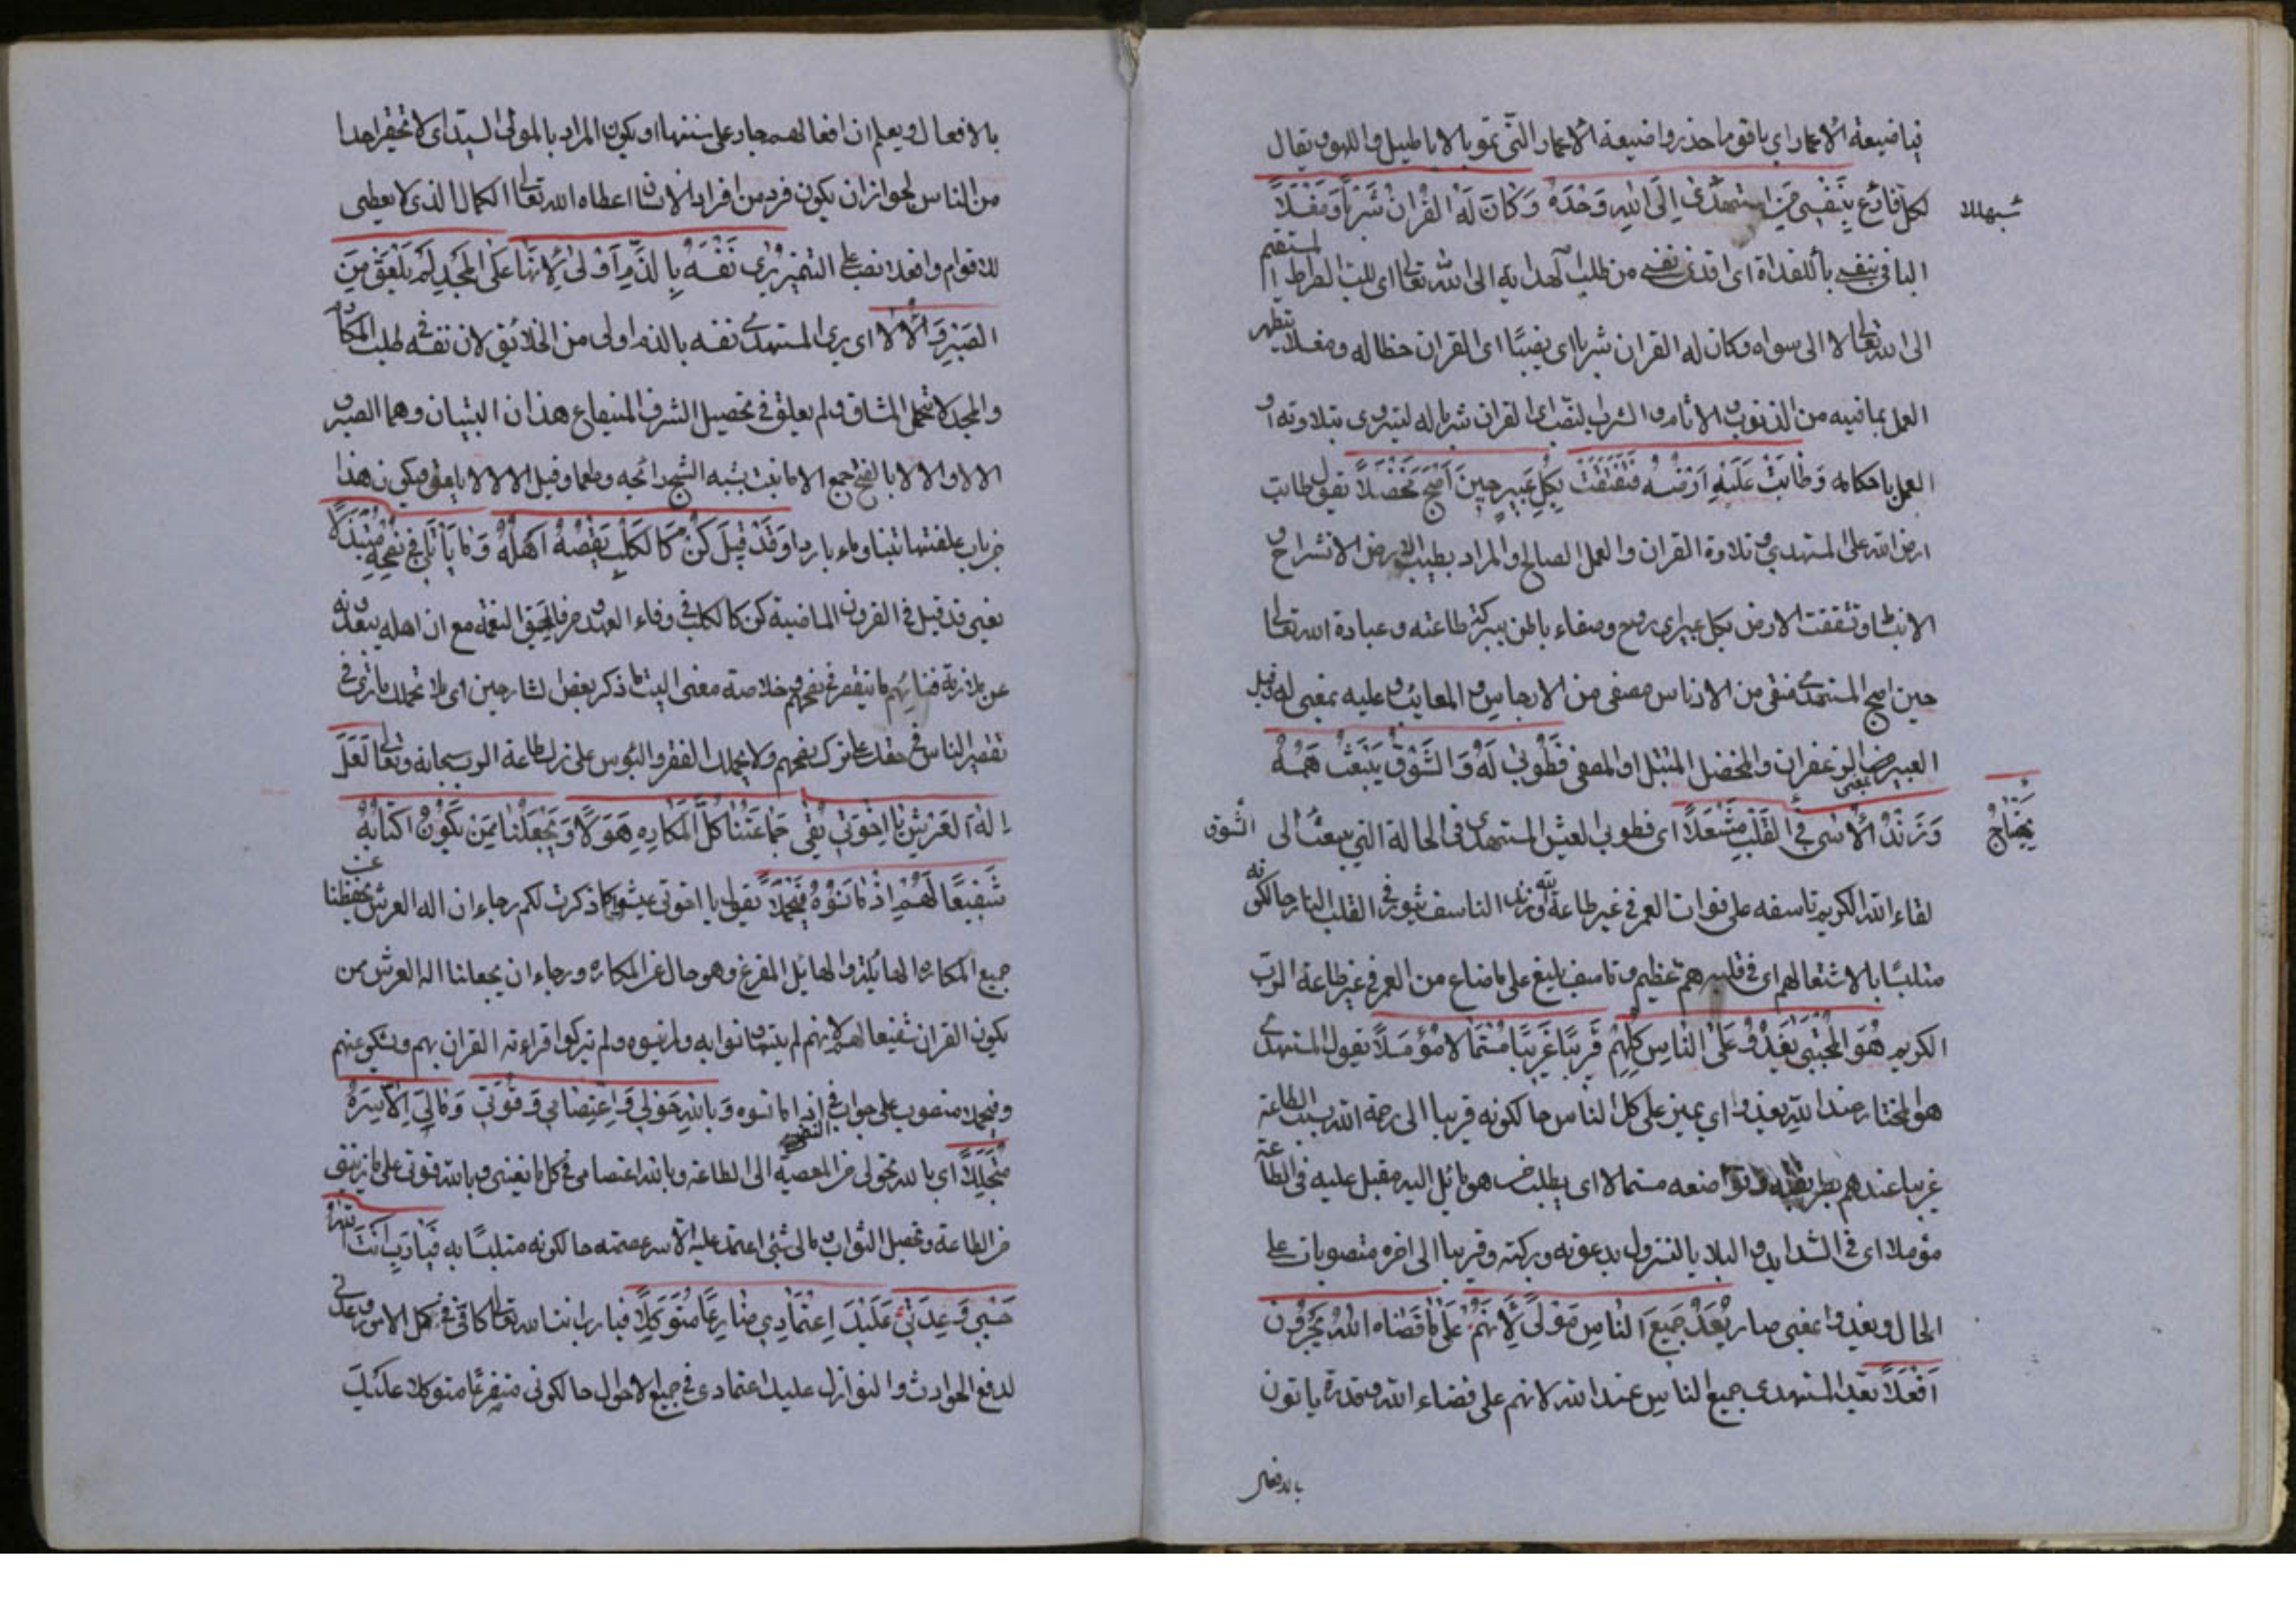 فيا ضيعة الاعمار اي ياقوم احذروا ضيعة الاعمار التي تمر بالاباطيل واللهو يقال
سبهللا
لكل فارغ بِنَفْسِي مَنِ اسْتَهْدَى اِلَى اللهِ وَحْدَهُ وَكَانَ لَهُ الْقُرْانُ شِرْبًا وَمَغْسَلًا
الباء في بنفسي بالفداة اى افدى نفسي من طلب الهداية الى الله تعالى اى للت الصراط المستقيم
الى الله تعالى لا الى سواه وكان له القران شربا اى نصيبا اى القران حظا له ومغسلا يتطهر
العمل بما فيه من الذنوب والاثام والشرب النصب اى القران شربا له ليتروى بتلاوته او
العمل باحكامه وَطَابَتْ عَلَيْهِ اَرْضُهُ فَتَفَتَّقَتْ بِكُلِّ عَبِيرٍ حِينَ اَصْبَحَ مُخْضَلًا يقول طابت
ارض الله على المستهدي بتلاوة القران والعمل الصالح والمراد بطيب الارض الانشراح و
الانبساط وتفتقت الارض بكل عبير اى بروح وصفاء باطن ببركة طاعته وعبادة الله تعالى
حين اصبح المستهدى منقى من الادناس مصفى من الارجاس والمعايب وعليه بمعنى له وقيل
العبير هنا الزعفران والمخضل المبتل او المصفى فَطُوبَى لَهُ وَالشَّوْقُ يَبْعَثُ هَمَّهُ
وَزَنْدُ الْاَسَى يَهْتَاجُ فِي الْقَلْبِ مُشْعِلًا اى فطوبى لعيش المستهدى في الحالة التي يبعث الشوق الى
لقاء الله الكريم تاسفه على فوات العمر في غير طاعته وزند التاسف يثور في القلب النار حال كونه
متلبسا بالاشتعال هم اى في قلبه هم عظيم وتاسف بليغ على ما ضاع من العمر في غير طاعة الرب
الكريم هُوَ الْمُجْتَبَى يَغْدُو عَلَى النَّاسِ كُلِّهِمْ قَرِيبًا غَرِيبًا مُسْتَمَالًا مُؤَمَّلًا يقول المستهدى
هو المختار عند الله يغدو اى يمر على كل الناس حال كونه قريبا الى رحمة الله بسبب الطاعة
غريبا عندهم بطريقته وتواضعه مستمالا اى يطلب من هو مائل اليه مقبل عليه في الطاعة
مؤملا اى في الشدايد والبلايا النزول بدعوته وبركته وقريبا الى اخره منصوبات على
الحال ويغدو بمعنى صار يَعُدُّ جَمِيعَ النَّاسِ مَوْلًى لِاَنَّهُمْ عَلَى مَا قَضَاهُ اللهُ يُجْرُونَ
اَفْعُلًا يعد المستهدى جميع الناس عند الله لانهم على قضاء الله وقدره ياتون
بالافعال
بالافعال ويعلم ان افعالهم جار على سننها او يكون المراد بالمولى السيد اى لا تحقر احدا
من الناس لجواز ان يكون فرد من افراد الانسان اعطاه الله تعالى الكمال الذى لا يعطى
للاقوام وافعلا نصب على التمييز يَرَى نَفْسَهُ بِالذَّمِّ اَوْلَى لِاَنَّهَا عَلَى الْمَجْدِ لَمْ تَلْعَقْ مِنَ
الصَّبْرِ وَالْاَلَا اى يرى المستهدى نفسه بالذم اولى من الخلائق لان نفسه طلب المكارم
والمجد لا تتحمل المشاق ولم يعلق في تحصيل الشرف المنيف مع هذان البيتان وهما الصبر و
الالا والالا بالفتح جمع الاءة نبت يشبه الشيح رائحة وطعما وقيل الالا لا يلعق فيكون هذا
من باب علفتها تبنا وماء باردا وَقَدْ قِيلَ كُنْ كَالْكَلْبِ يُقْصِيهِ اَهْلُهُ وَمَا يَأْتَلِي فِي نُصْحِهِمْ مُتَبَذِّلًا
يعنى قد قيل في القرون الماضية كن كالكلب في وفاء العهد صرفا لحق النعمة مع ان اهله يبعدونه
عن ملازمة فنائهم ما يقصر في نصحهم خلاصة معنى البيت ما ذكر بعض الشارحين اى لا تحملك ما ترى في
تقصير الناس في حقك على ترك نصحهم ولا يحملك الفقر والبؤس على ترك طاعة الرب سبحانه وتعالى لَعَلَّ
اِلَهَ الْعَرْشِ يَا اِخْوَتِي يَقِي جَمَاعَتَنَا كُلَّ الْمَكَارِهِ هُوَّلًا وَيَجْعَلُنَا مِمَّنْ يَكُونُ كِتَابُهُ
شَفِيعًا لَهُمْ اِذْ مَا نَسُوهُ فَيَمْحَلَا يقول يا اخوتى عيشوا كما ذكرت لكم رجاء ان اله العرش يحفظنا عن
جميع المكاره الهايلة والهايل المفزع وهو حال عن المكاره ورجاء ان يجعلنا اله العرش ممن
يكون القران شفيعا لهم لانهم لم يتهاونوا به ولم ينسوه ولم يتركوا قراءته القران بهم ويشكو عنهم
فيمحلا منصوب على جواب النفى في اذ ما نسوه وَبِاللهِ حَوْلِي وَاعْتِصَامِي وَقُوَّتِي وَمَالِيَ اِلَّا سِتْرُهُ
مُتَجَلِّلًا اى بالله تحولى من المعصية الى الطاعة وبالله اعتصامى في كل ما يعيبنى وبالله قوتى على ما يرزقنى
من الطاعة وتحصيل الثواب مالى شئ اعتمد عليه الا ستر عصمته حال كونه متلبسا به فَيَا رَبِّ اَنْتَ اللهُ
حَسْبِي وَعُدَّتِي عَلَيْكَ اعْتِمَادِي ضَارِعًا مُتَوَكِّلًا فيا رب انت الله تعالى كافى في كل الامور وعدتى
لدفع الحوادث والنوازل عليك اعتمادى في جميع الاحوال حال كونى متضرعا متوكلا عليك